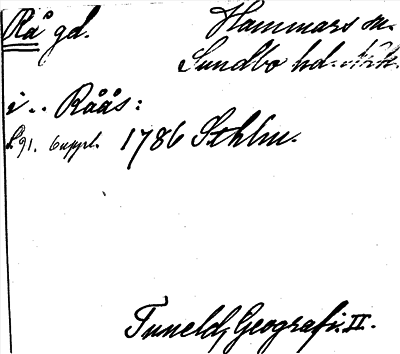 Rå gd. Hammars sn.
Sundbo hd. Närk.
i .. Råås:
S. 91. 6 uppl. 1786 Sthlm.
Tuneld, Geografi. II.